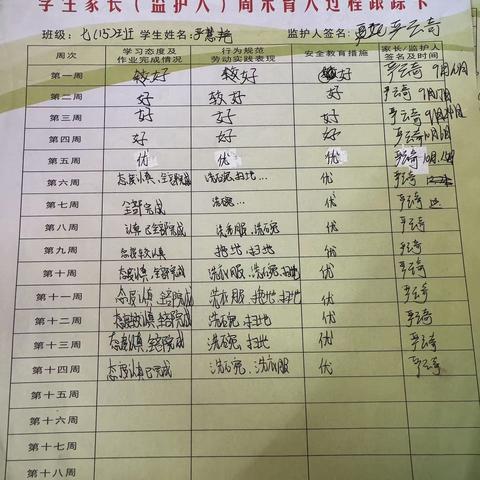 学生家长（监护人）周末育人过程跟踪卡
班级：八(15)班 学生姓名： 监护人签名：严云奇
周次 学习态度及作业完成情况 行为规范劳动实践表现 安全教育措施 家长/监护人签名及时间
第一周 较好 较好 较好 严云奇 9月
第二周 好 较好 好 严云奇 9月
第三周 好 好 好 严云奇 9月
第四周 好 好 好 严云奇
第五周 优 优 优 严云奇 10月
第六周 态度认真,全部完成 洗碗,扫地... 优 严云奇
第七周 全部完成 洗碗... 优 严云奇
第八周 认真已全部完成 洗衣服,洗碗,扫地 优 严云奇
第九周 态度较认真 拖地,扫地 优 严云奇
第十周 态度认真,全部完成 洗衣服,洗碗,扫地 优 严云奇
第十一周 态度认真,全部完成 洗衣服,拖地,扫地 优 严云奇
第十二周 态度较认真,全部完成 洗碗,扫地 优 严云奇
第十三周 态度认真,全部完成 洗碗,扫地 优 严云奇
第十四周 态度认真已完成 洗碗,洗衣服 优 严云奇
第十五周
第十六周
第十七周
第十八周